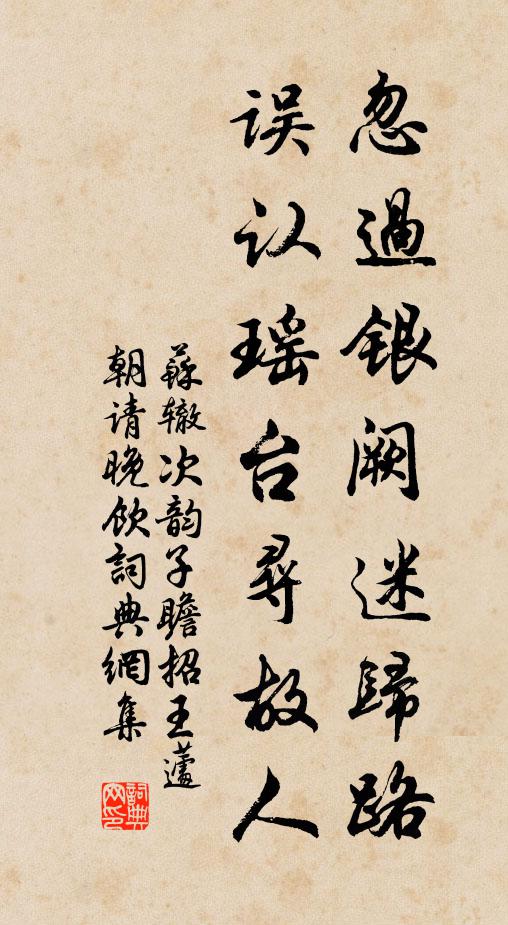 忽過银阙迷歸路
误认瑶台尋故人
蘇辙次韵子瞻招王蘧
朝请晚饮詞典網集
詞典网印